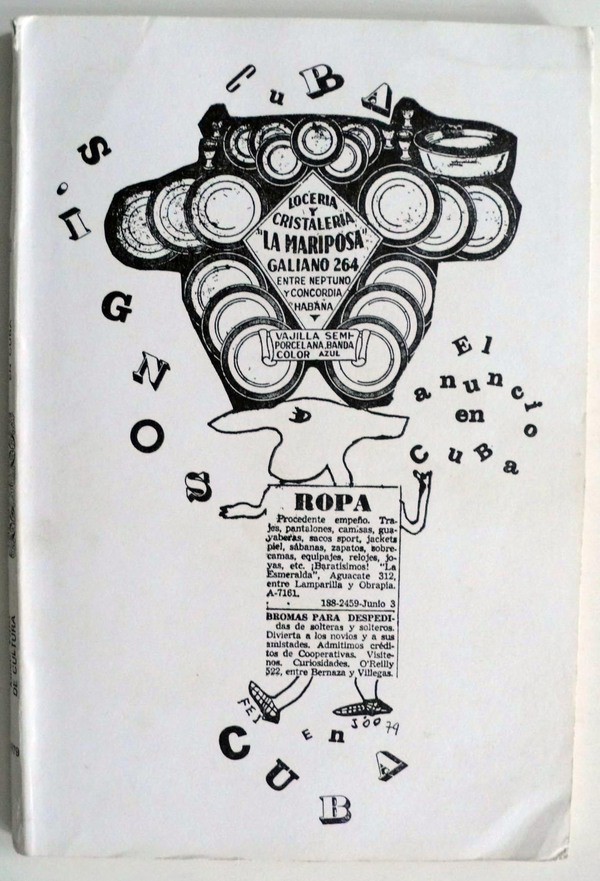 CuBA
S.IGNOS
LOCERIA
Y
CRISTALERIA
"LA MARIPOSA"
GALIANO 264
ENTRE NEPTUNO
Y CONCORDIA
HABANA
VAJILLA SEMI-
PORCELANA, BANDA
COLOR AZUL
El
anuncio
en
CuBa
ROPA
Procedente empeño. Tra-
jes, pantalones, camisas, gua-
yaberas, sacos sport, jackets
piel, sábanas, zapatos, sobre-
camas, equipajes, relojes, jo-
yas, etc. ¡Baratísimos! "La
Esmeralda", Aguacate 312,
entre Lamparilla y Obrapía.
A-7161.
188-2459-Junio 3
BROMAS PARA DESPEDI-
das de solteras y solteros.
Divierta a los novios y a sus
amistades. Admitimos crédi-
tos de Cooperativas. Visíte-
nos. Curiosidades. O'Reilly
522, entre Bernaza y Villegas.
FEIJÓO 79
en
CUBA
EN CUBA
DE CULTURA